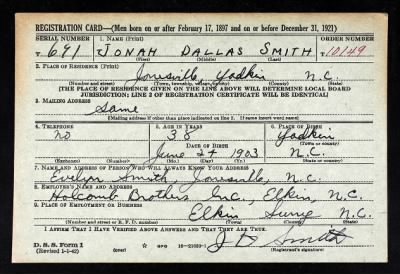 REGISTRATION CARD—(Men born on or after February 17, 1897 and on or before December 31, 1921)
SERIAL NUMBER 1. NAME (Print) ORDER NUMBER
T. 691 JONAH DALLAS SMITH 10149
(First) (Middle) (Last)
2. PLACE OF RESIDENCE (Print)
Jonesville, Yadkin N.C.
(Number and street) (Town, township, village, or city) (County) (State)
[THE PLACE OF RESIDENCE GIVEN ON THE LINE ABOVE WILL DETERMINE LOCAL BOARD
JURISDICTION; LINE 2 OF REGISTRATION CERTIFICATE WILL BE IDENTICAL]
3. MAILING ADDRESS
Same
[Mailing address if other than place indicated on line 2. If same insert word same]
4. TELEPHONE 5. AGE IN YEARS 6. PLACE OF BIRTH
no 38 Yadkin
DATE OF BIRTH (Town or county)
June 24 1903 N.C.
(Exchange) (Number) (Mo.) (Day) (Yr.) (State or country)
7. NAME AND ADDRESS OF PERSON WHO WILL ALWAYS KNOW YOUR ADDRESS
Evelyn Smith Jonesville, N.C.
8. EMPLOYER'S NAME AND ADDRESS
Holcomb Brothers Inc., Elkin, N.C.
9. PLACE OF EMPLOYMENT OR BUSINESS
Elkin Surry N.C.
(Number and street or R. F. D. number) (Town) (County) (State)
I AFFIRM THAT I HAVE VERIFIED ABOVE ANSWERS AND THAT THEY ARE TRUE.
D. S. S. Form 1
(Revised 1-1-42) (over) GPO J D Smith
(Registrant's signature)